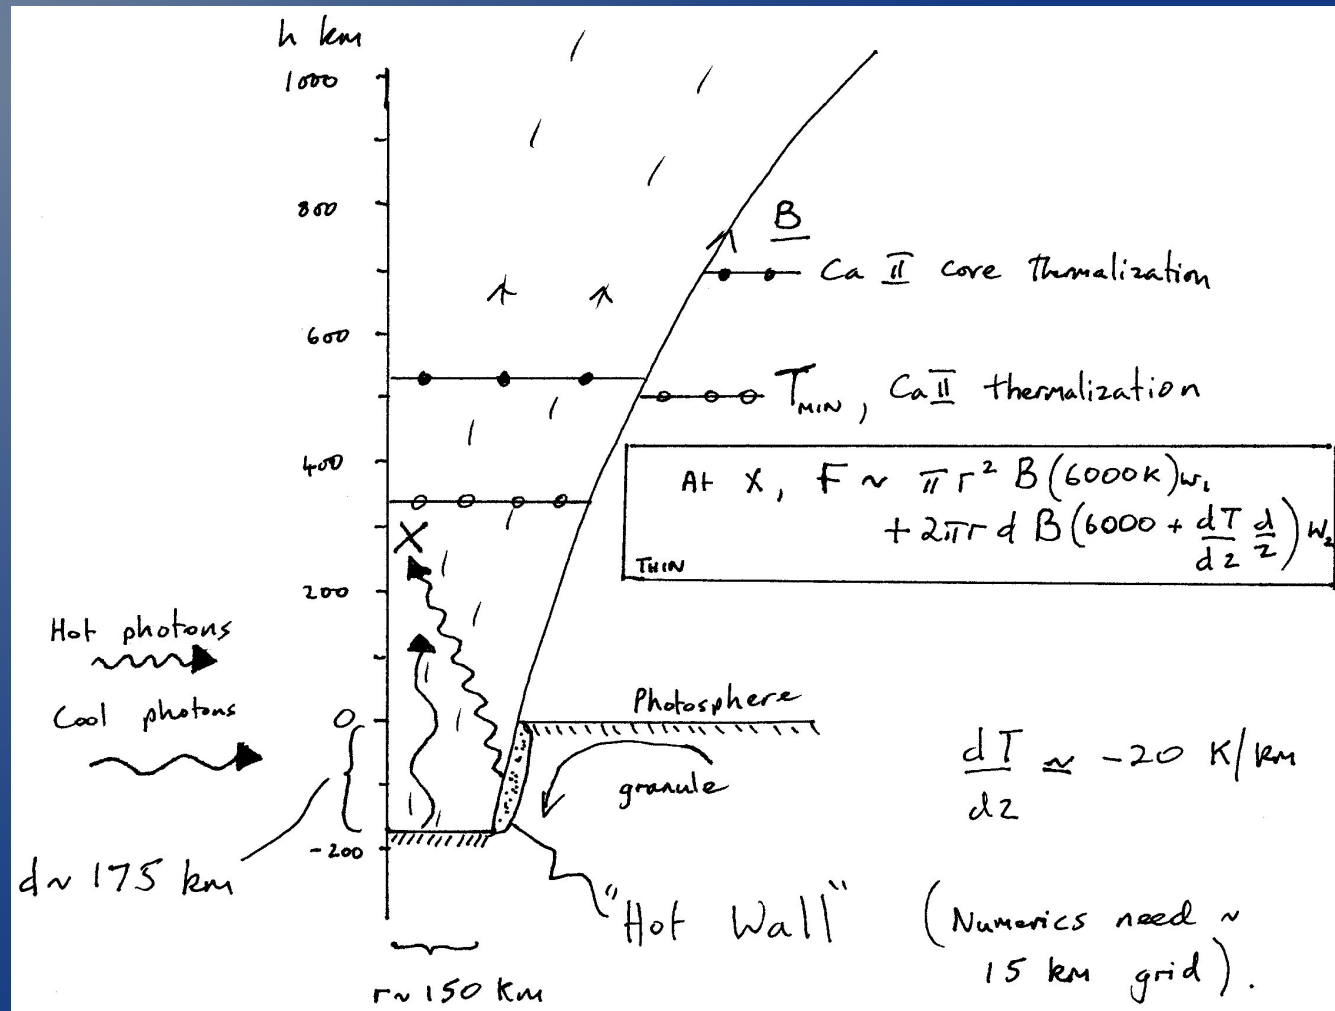 h km
1000
800
600
400
200
0
-200
B
Ca II core thermalization
TMIN, Ca II thermalization
At X, F ~ πr² B(6000K)w₁
+ 2πr d B(6000 + dT/dz d/2) w₂
THIN
X
Hot photons
Cool photons
Photosphere
granule
dT/dz ≃ -20 K/km
d ~ 175 km
"Hot Wall"
(Numerics need ~
15 km grid).
r ~ 150 km